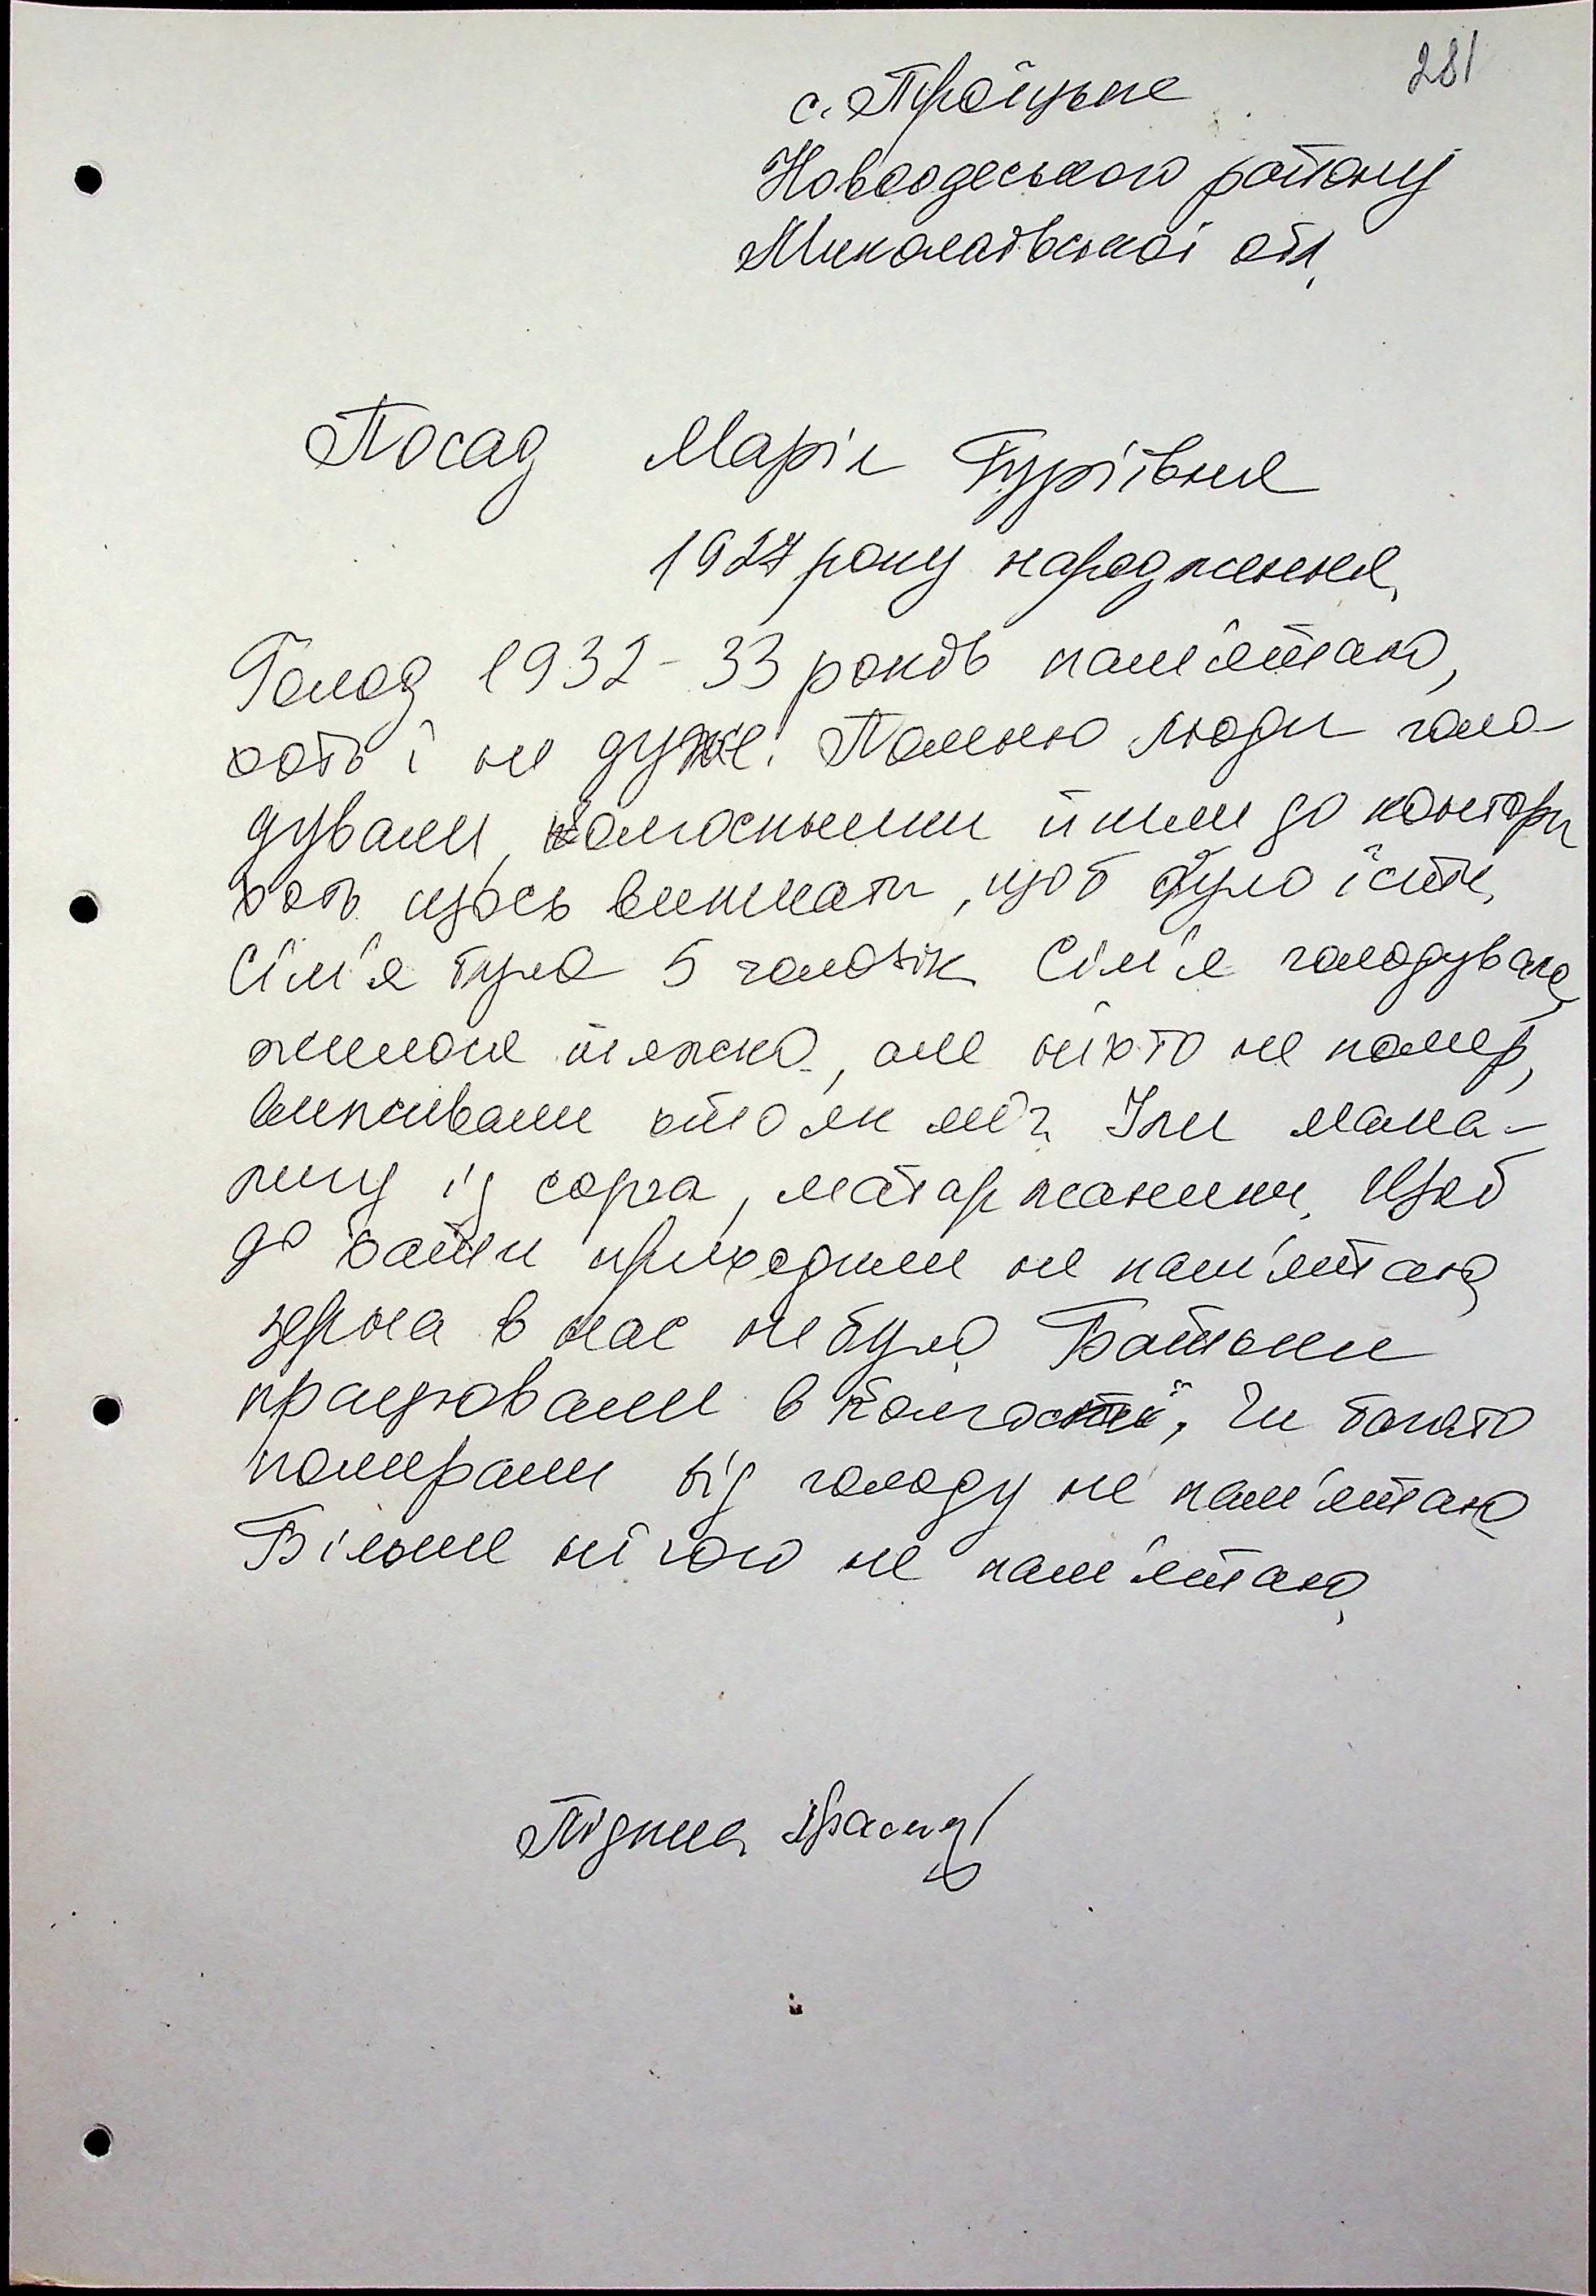 281
с. Троїцьке
Новоодеського району
Миколаївської обл.
Посад Марія Гуріївна
1927 року народження,
Голод 1932-33 років пам'ятаю,
хоть і не дуже. Помню люди голо-
дували, колгоспники йшли до контори
хоть щось виписати, щоб було їсти,
Сім'я була 5 чоловік Сім'я голодувала,
жилося тяжко, але ніхто не помер,
виживали хто як міг. Їли мама-
лигу із сорга, маторжаники. Щоб
до хати приходили не пам'ятаю,
зерна в нас не було. Батьки
працювали в колгоспі, Чи багато
помирали від голоду не пам'ятаю
Більше нічого не пам'ятаю,
Підпис